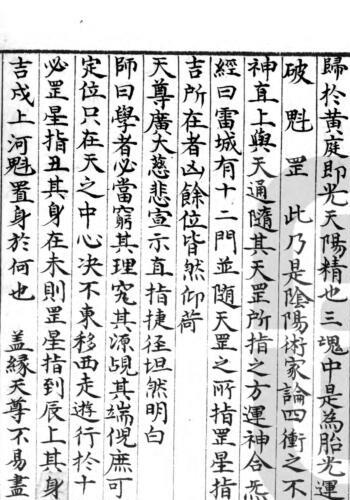 歸於黃庭即光天陽精也三塊中是為胎光運
破魁罡 此乃是陰陽術家論四衝之不
神直上與天通隨其天罡所指之方運神合炁
經曰雷城有十二門並隨天罡之所指罡星指
吉所在者凶餘位皆然仰荷
天尊廣大慈悲宣示直指捷徑坦然明白
師曰學者必當窮其理究其源覘其端倪庶可
定位只在天之中心決不東移西走遊行於十
必罡星指丑其身在未則罡星指到辰上其身
吉戌上河魁置身於何也 盖緣天尊不易盡